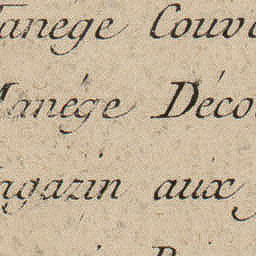 Manege Couv
Manége Déco
Magazin aux